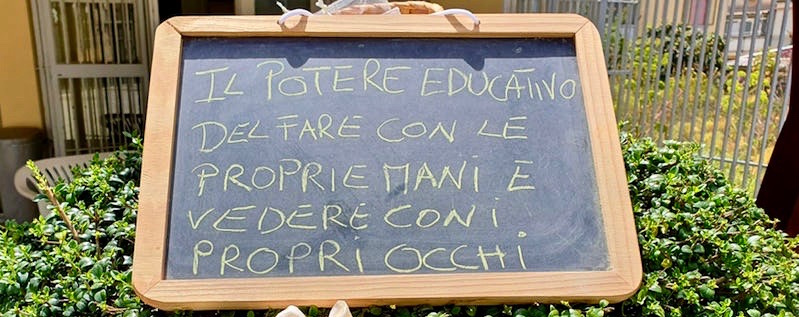 IL POTERE EDUCATIVO
DEL FARE CON LE
PROPRIE MANI E
VEDERE CON I
PROPRI OCCHI